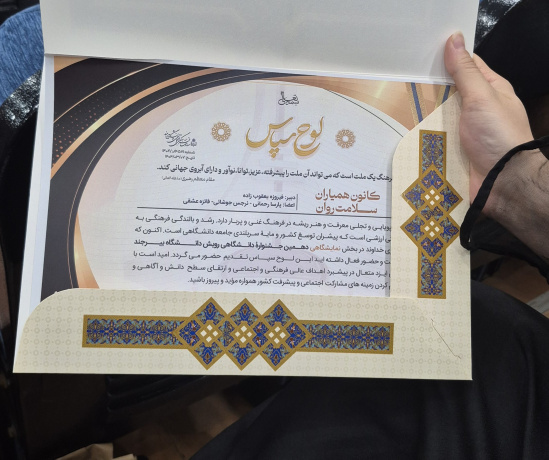 لوح سپاس
فرهنگ یک ملت است که می تواند آن ملت را پیشرفته، عزیز، توانا، نوآور و دارای آبروی جهانی کند.
مقام معظم رهبری
کانون همیاران سلامت روان
دبیر: فیروزه یعقوب زاده
اعضا: پارسا رحمانی - نرجس جوشانی - فائزه عشقی
پویایی و تجلی معرفت و هنر ریشه در فرهنگ غنی و پربار دارد. رشد و بالندگی فرهنگی به
ارزشی است که پیشران توسعه کشور و مایه سربلندی جامعه دانشگاهی است. اکنون که
خداوند در بخش نمایشگاهی دهمین جشنواره دانشگاهی رویش دانشگاه بیرجند
و حضور فعال داشته اید این لوح سپاس تقدیم حضور می گردد. امید است با
ایزد متعال در پیشبرد اهداف عالی فرهنگی و اجتماعی و ارتقای سطح دانش و آگاهی و
کردن زمینه های مشارکت اجتماعی و پیشرفت کشور همواره مؤید و پیروز باشید.